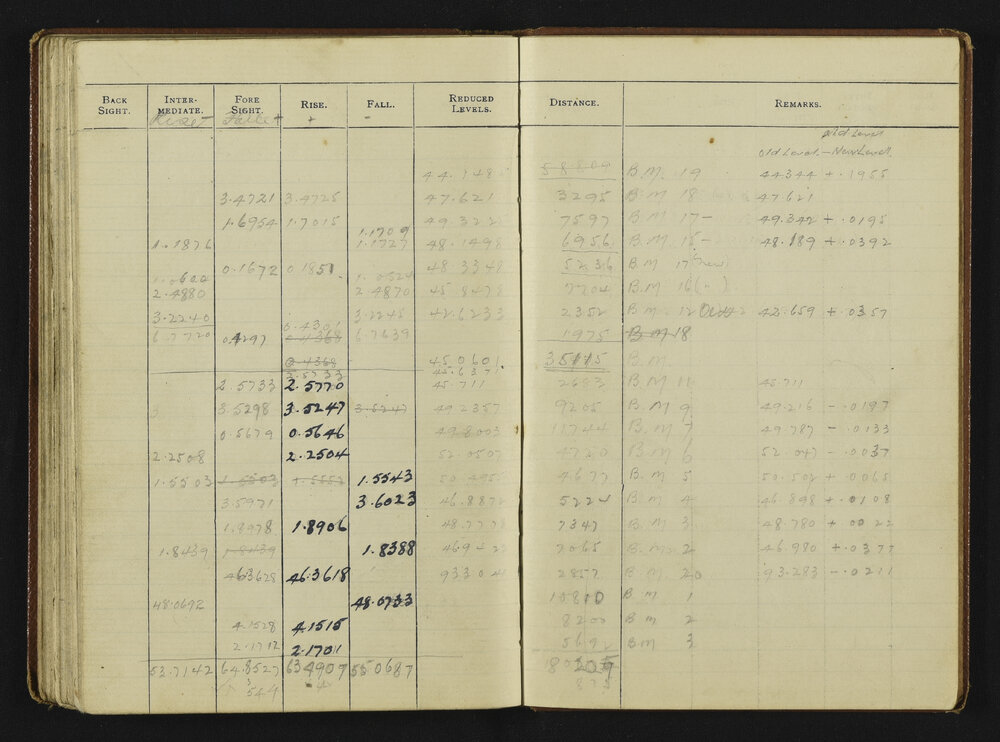 BACK SIGHT. INTER-MEDIATE. FORE SIGHT. RISE. FALL. REDUCED LEVELS. DISTANCE. REMARKS.
Rise - +
Old Level
Old Level - New Level
58809 B.M. 19 44.344 + .1955
3.4721 3.4725 47.621 3295 B.M 18 47.621
1.6954 1.7015 49.322 7597 B.M 17 - 49.342 + .0195
1.1709
1.1876 1.1727 48.1498 6956 B.M 15 - 48.189 + .0392
0.1672 0.1851 48.3348 5236 B.M 17
2.4880 2.4870 45.8478 7704 B.M 16
3.2240 3.2245 42.6233 2352 B.M 12 42.659 + .0357
0.4301
6.7720 0.4297 0.4368 6.7639 1975 B M 18
0.4368 45.0601 35115 B.M
2.5733 45.637
2.5733 2.5770 45.711 2683 B.M 11 45.711
3.5298 3.5247 3.5247 49.2357 9205 B.M 9 49.216 - .0197
0.5679 0.5646 49.8003 11744 B.M 7 49.787 - .0133
2.2508 2.2504 52.0507 4720 B.M 6 52.047 - .0037
1.5503 1.5503 1.5552 1.5543 50.4955 4677 B.M 5 50.502 + .0065
3.5971 3.6023 46.8872 5224 B.M 4 46.898 + .0108
1.8978 1.8906 48.7778 7347 B.M 3 48.780 + .0022
1.8439 1.8439 1.8388 7065 B.M. 2 46.980 + .0377
46.3628 46.3618 933041 2857 B.M. 20 93.283 - .0211
48.0692 48.0733 15810 B M 1
4.1528 4.1515 8200 B M 2
2.1712 2.1701 5692 B.M 3
53.7142 64.8527 634907 550687
544